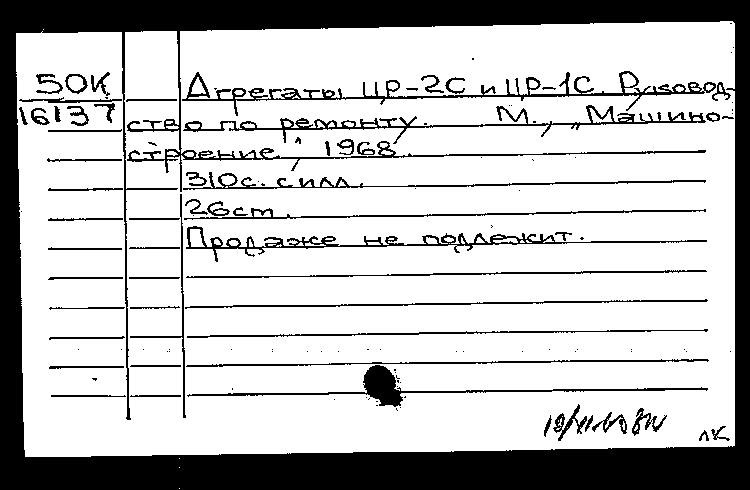 50К Агрегаты ЦР-2С и ЦР-1С. Руковод-
16137 ство по ремонту. М., „Машино-
строение", 1968.
310с. с илл.
26см.
Продаже не подлежит.
ЛК